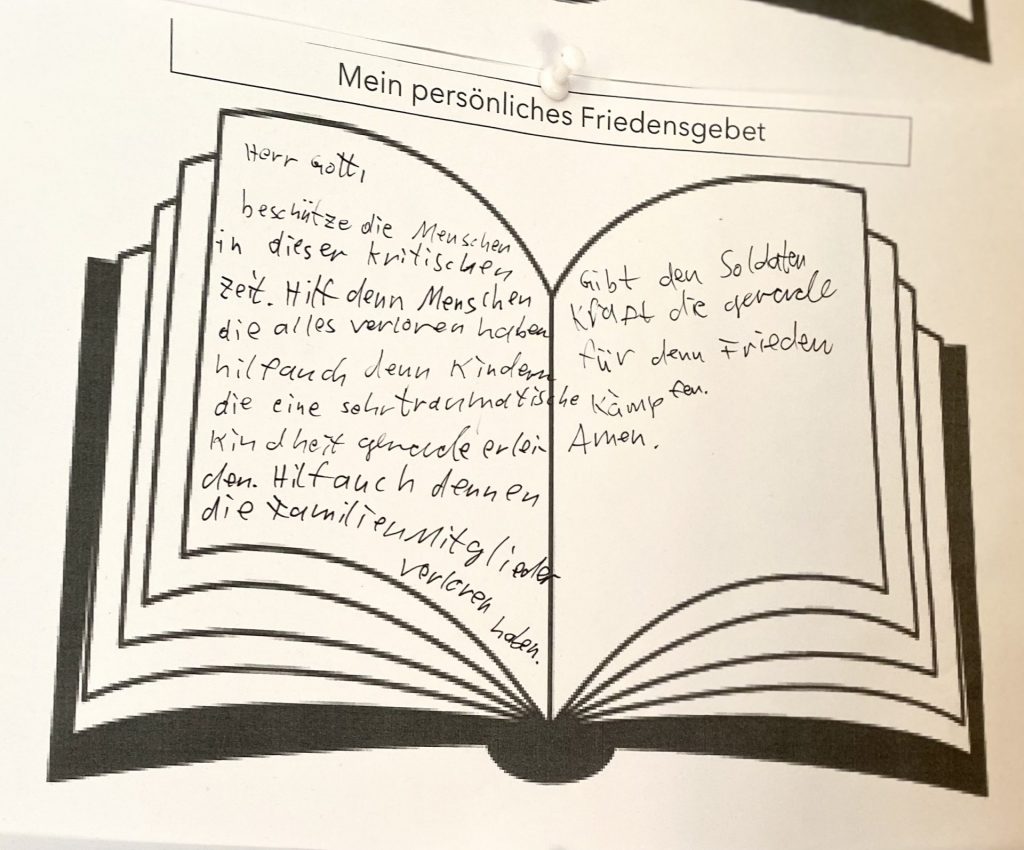 Mein persönliches Friedensgebet
Herr Gott,
beschütze die Menschen
in dieser kritischen
Zeit. Hilf denn Menschen
die alles verloren haben
hilf auch denn Kindern
die eine sehr traumatische
Kindheit gerade erlei
den. Hilf auch dennen
die Familien Mitglieder
verloren haben.
Gibt den Soldaten
Kraft die gerade
für denn Frieden
kämpfen.
Amen.